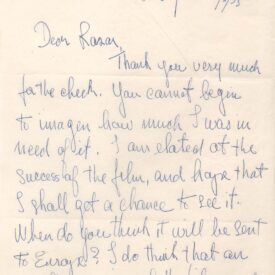 Dear
Thank you very much
for the check. You cannot begin
to imagen how much I was in
need of it. I am elated at the
success of the film, and hope that
I shall get a chance to see it.
When do you think it will be sent
to Europe? I do think that an